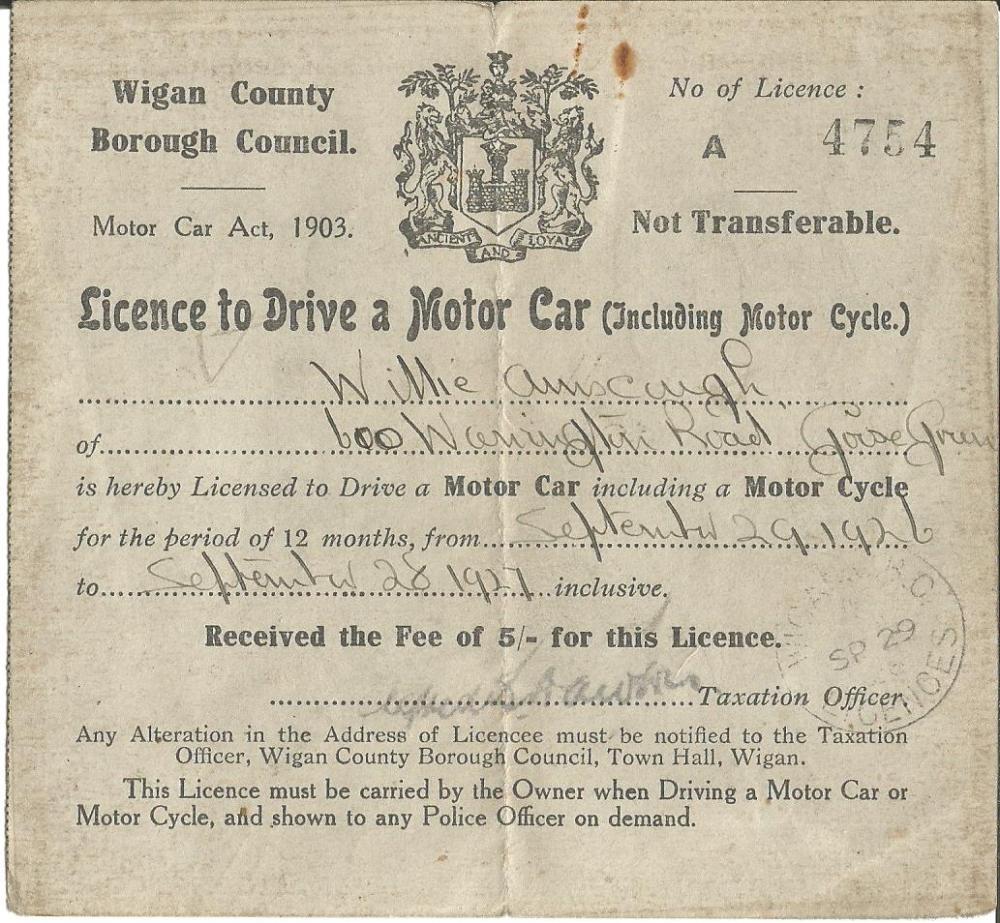 Wigan County
Borough Council.
Motor Car Act, 1903.
ANCIENT AND LOYAL
No of Licence :
A 4754
Not Transferable.
Licence to Drive a Motor Car (Including Motor Cycle.)
Willie Ainscough
of 600 Warrington Road Goose Green
is hereby Licensed to Drive a Motor Car including a Motor Cycle
for the period of 12 months, from September 29 1926
to September 28 1927 inclusive.
Received the Fee of 5/- for this Licence.
Taxation Officer.
SP 29
LICENCES
Any Alteration in the Address of Licencee must be notified to the Taxation
Officer, Wigan County Borough Council, Town Hall, Wigan.
This Licence must be carried by the Owner when Driving a Motor Car or
Motor Cycle, and shown to any Police Officer on demand.